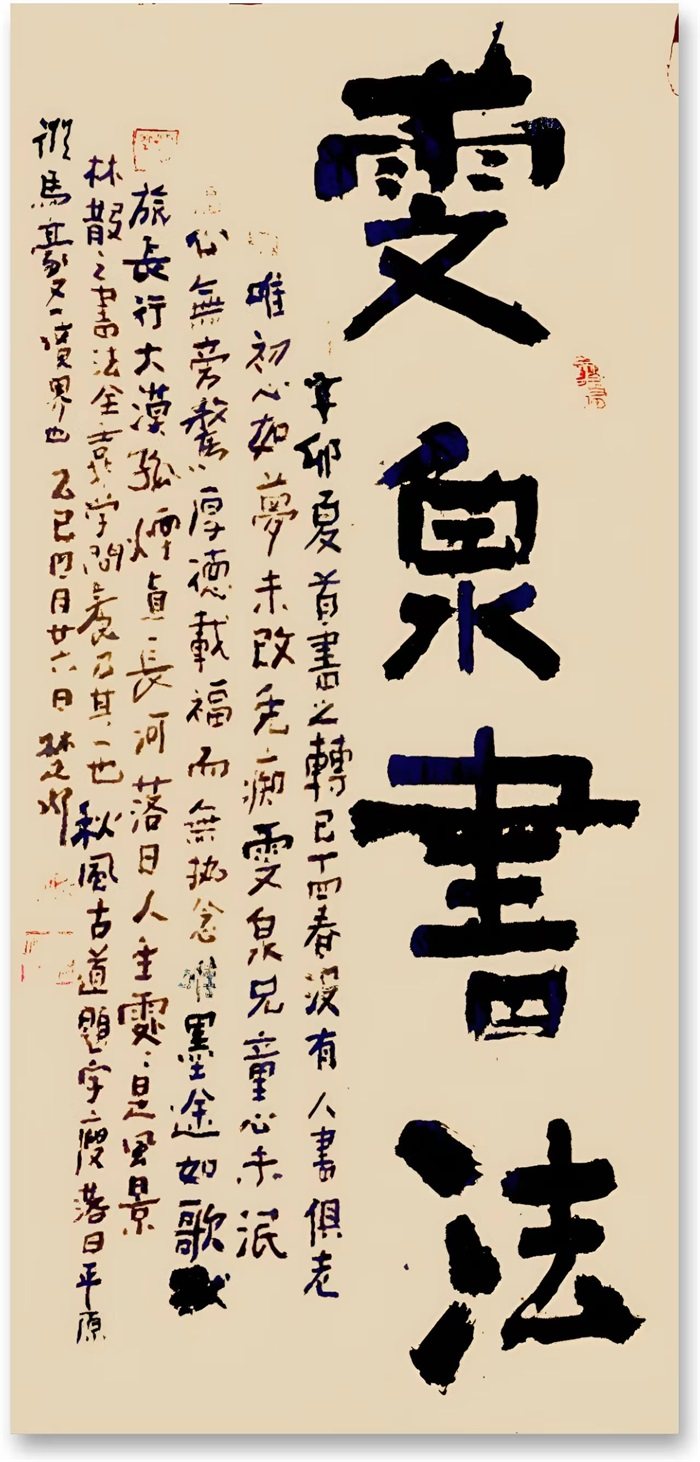 雯泉書法
辛卯夏首書之轉已丁酉春没有人書俱老
唯初心如夢未改 痴雯泉兄童心未泯
心無旁騖厚德載福而無執念唯墨途如歌
旅長行大漠孤煙直長河落日人生處處是風景
林散之書法全靠學問養 其一也秋風古道題字瘦落日平原
馬豪又一境界也乙巳四月廿六日